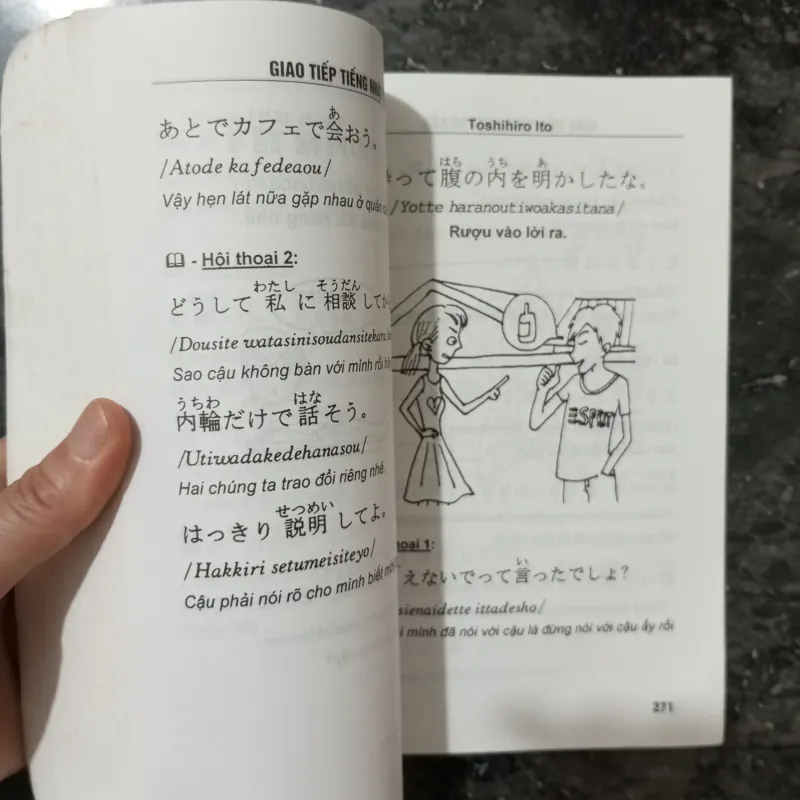 GIAO TIẾP TIẾNG NHẬ
あとでカフェで会おう。
あ
/Atode kafedeaou/
Vậy hẹn lát nữa gặp nhau ở quán
- Hội thoại 2:
わたし そうだん
どうして 私 に 相談 して
/Dousite watasinisoudansitekara
Sao cậu không bàn với mình rồi
うちわ はな
内輪だけで 話 そう。
/Utiwadakedehanasou/
Hai chúng ta trao đổi riêng nhé.
せつめい
はっきり 説明 してよ。
/Hakkiri setumeisiteyo/
Cậu phải nói rõ cho mình biết
Toshihiro Ito
はら うち あ
って腹の内を明かしたな。
/Yotte haranoutiwoakasitana/
Rượu vào lời ra.
ESPOT
oại 1:
い
えないでって言ったでしょ?
sienaidette ittadesho/
mình đã nói với cậu là đừng nói với cậu ấy rồi
271